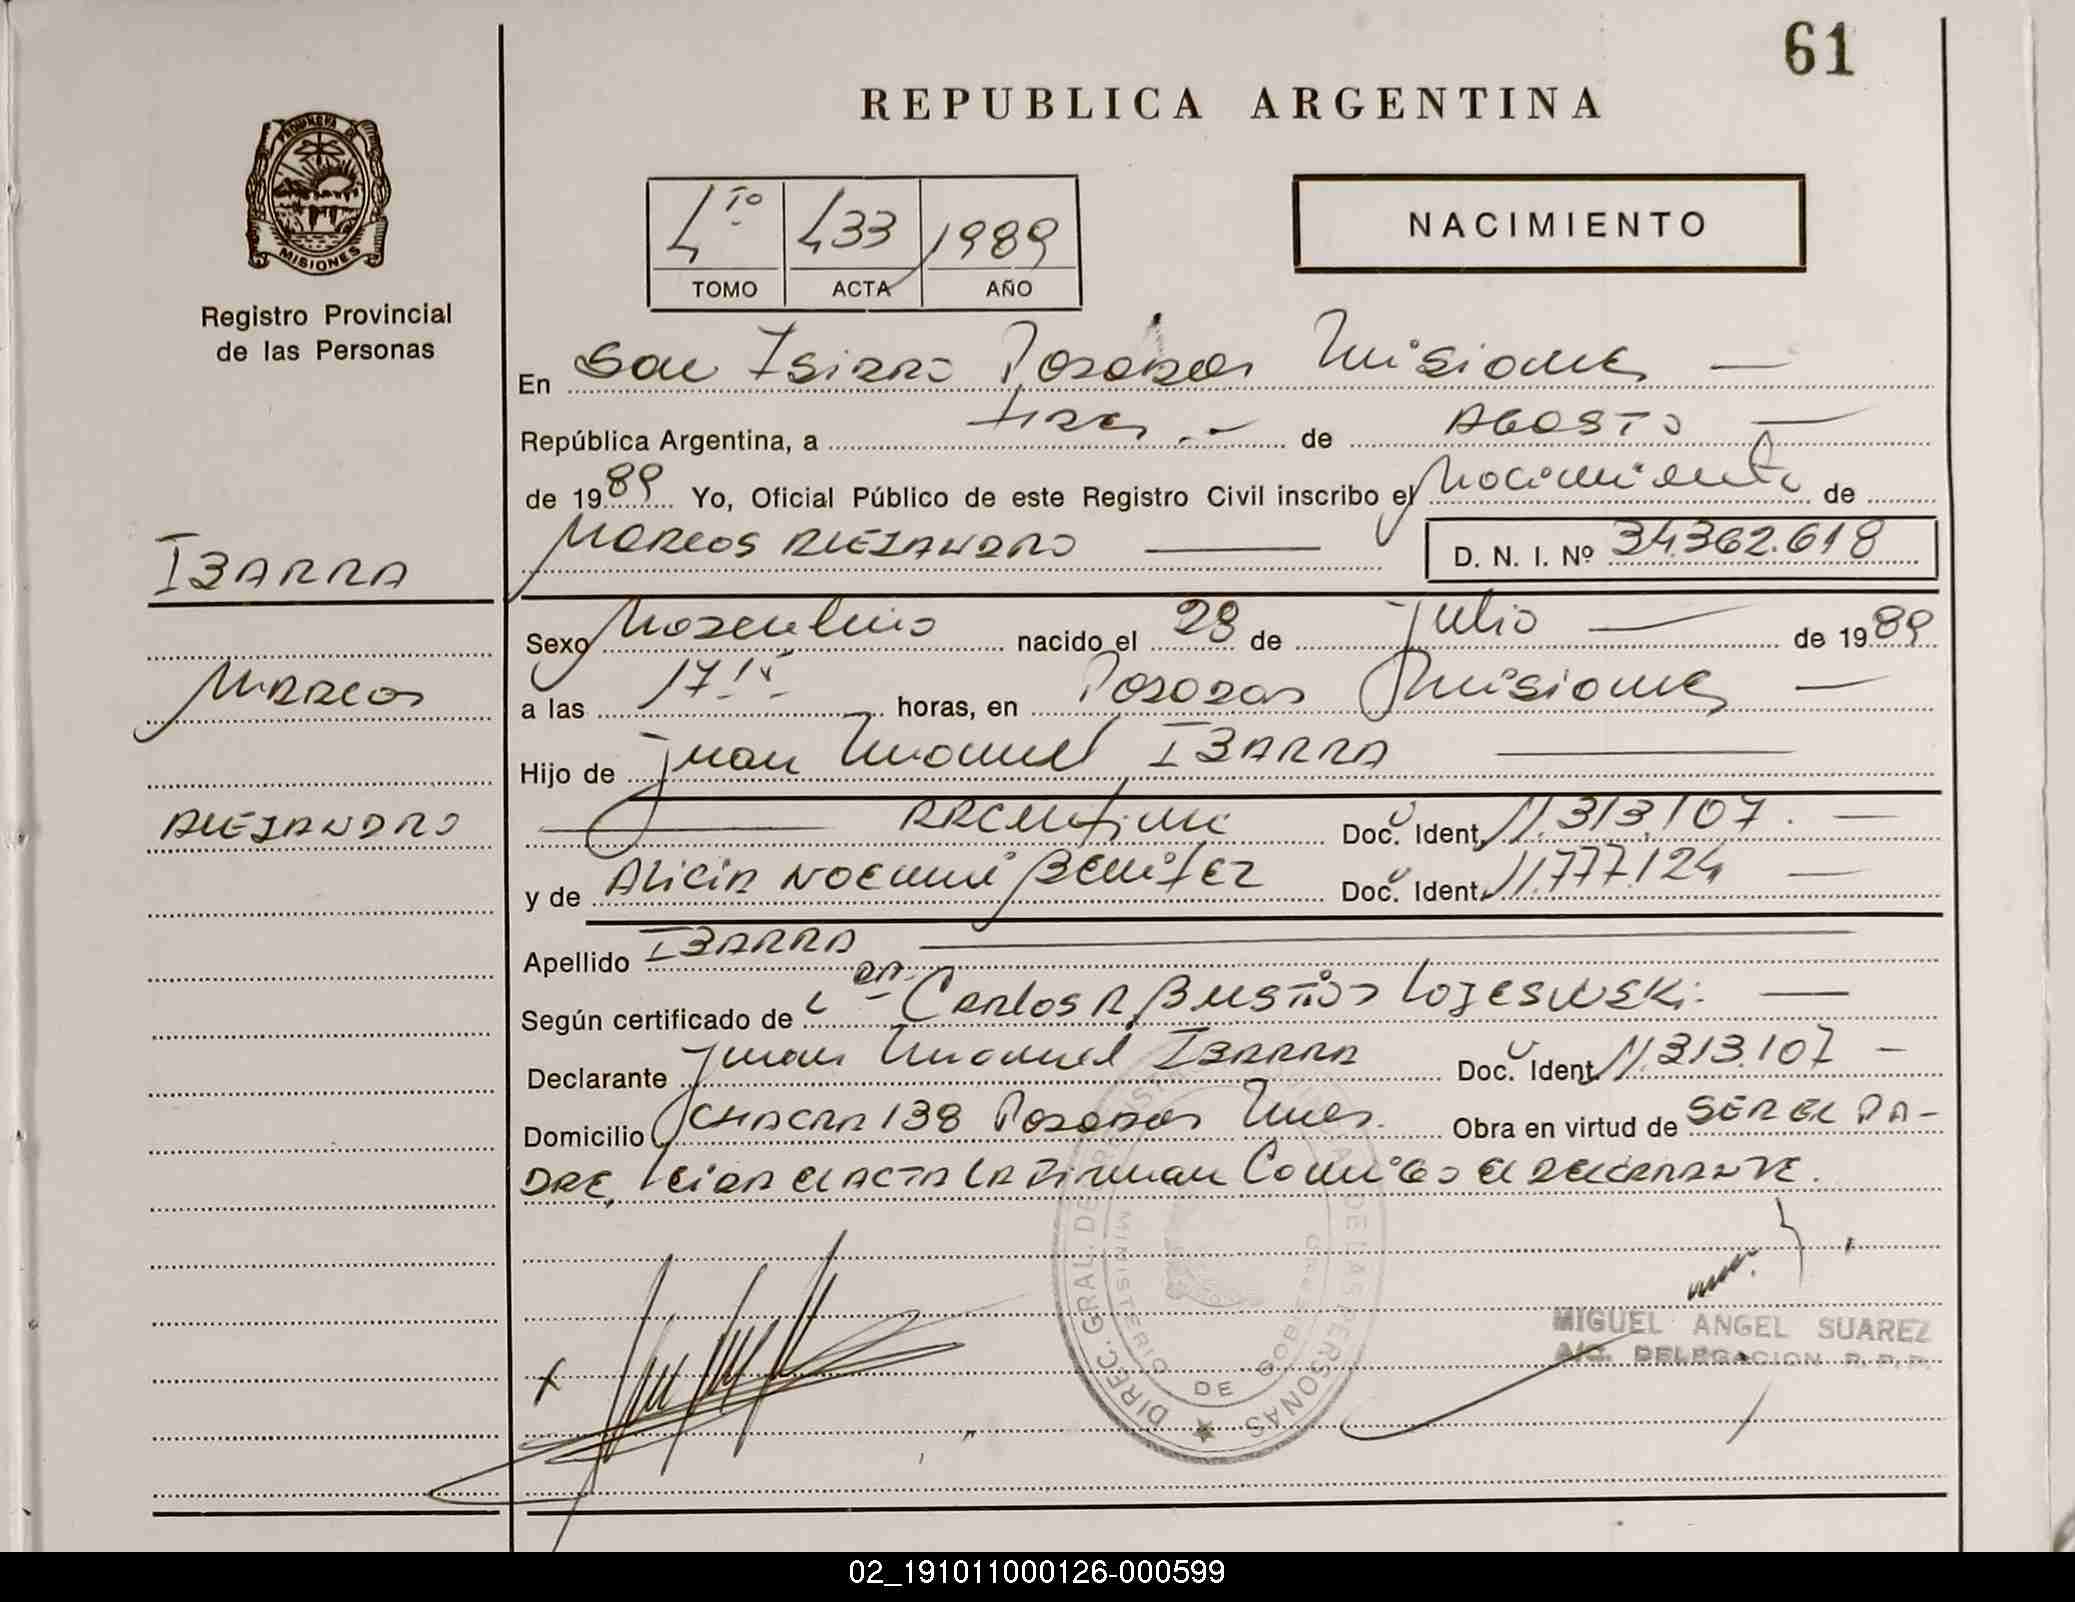 61
REPUBLICA ARGENTINA
PROVINCIA DE
MISIONES
Registro Provincial
de las Personas
4to 433 1989
TOMO ACTA AÑO
NACIMIENTO
En San Isidro Posadas Misiones —
República Argentina, a tres .- de AGOSTO —
de 1989 Yo, Oficial Público de este Registro Civil inscribo el Nacimiento de
MARCOS ALEJANDRO — D. N. I. Nº 34.362.618
IBARRA
Marcos
ALEJANDRO
Sexo Masculino nacido el 28 de Julio — de 1989
a las 17.15 horas, en Posadas Misiones —
Hijo de Juan Manuel IBARRA —
— ARGENTINO Doc. Ident. 11.313.107. —
y de Alicia Noemi Benitez Doc. Ident. 11.777.124 —
Apellido IBARRA —
Según certificado de Carlos R Bustos Lojeswski. —
Declarante Juan Manuel IBARRA Doc. Ident. 11.313.107 —
Domicilio CHACRA 138 Posadas Mnes. Obra en virtud de SER EL PA-
DRE, leida el ACTA LA Firman Conmigo el DECLARANTE.
DIREC. GRAL. DE DE LAS PERSONAS
MINISTERIO DE GOBIERNO
MIGUEL ANGEL SUAREZ
A/C. DELEGACION R. P. P.
02_191011000126-000599